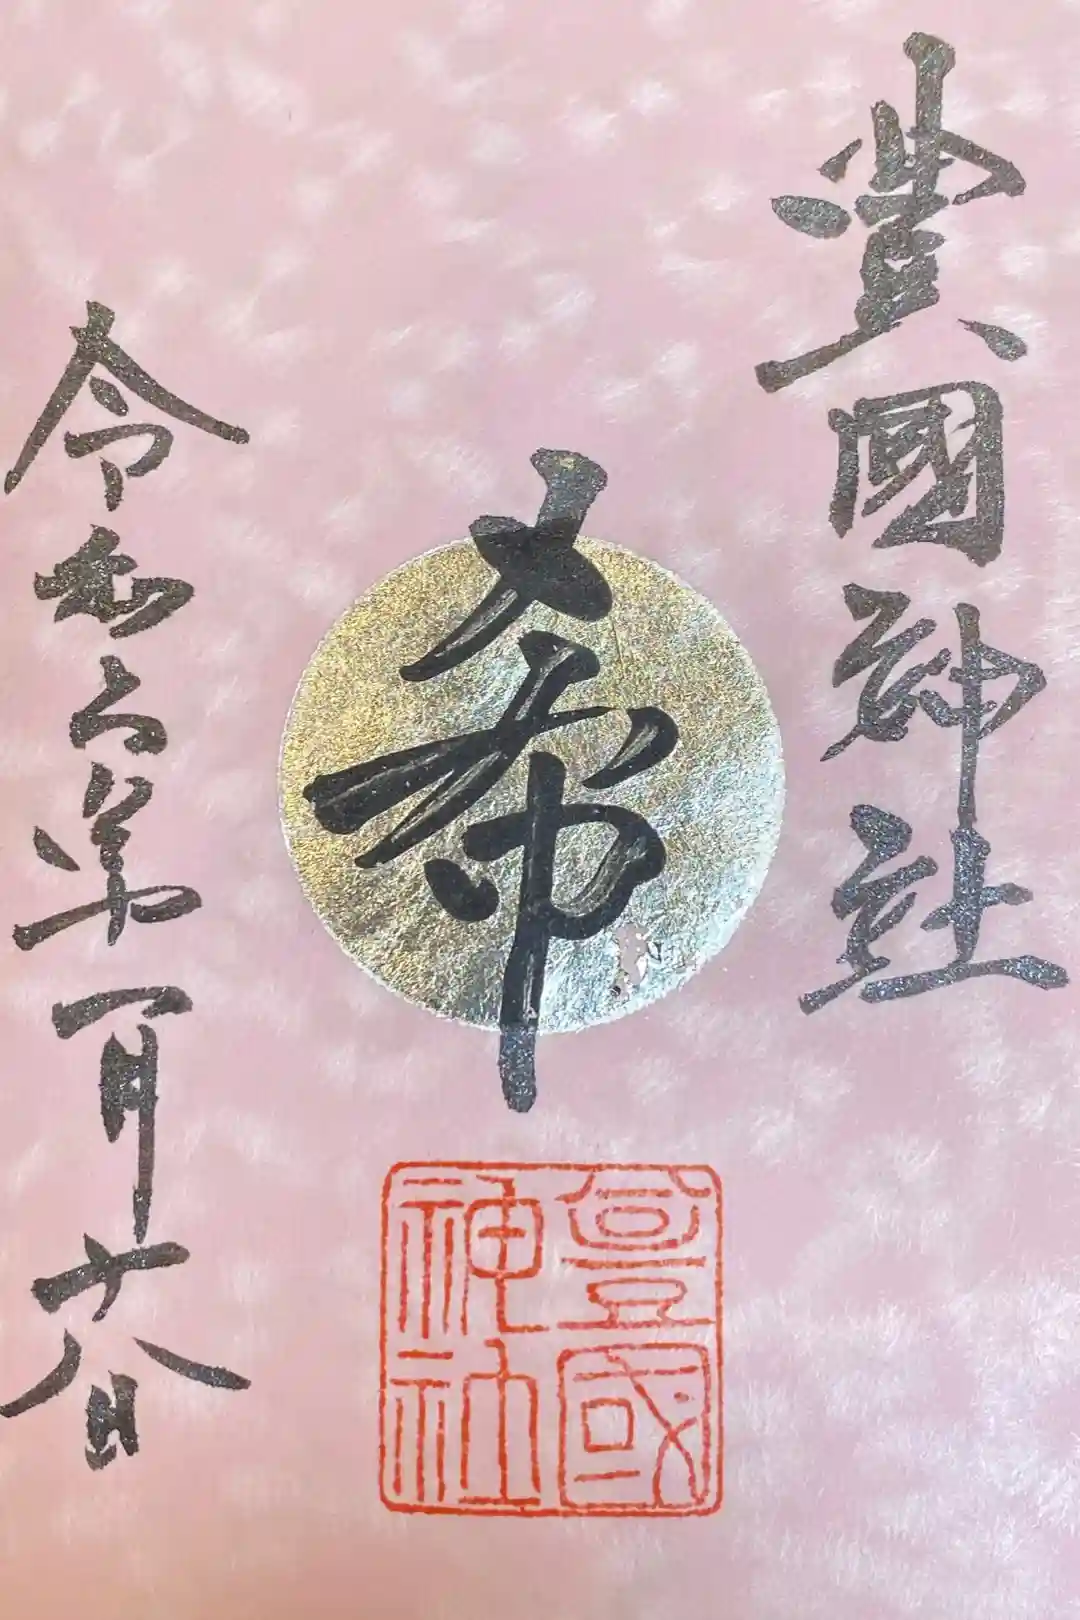 豊國神社
希
豊國
神社
令和六年一月廿八日